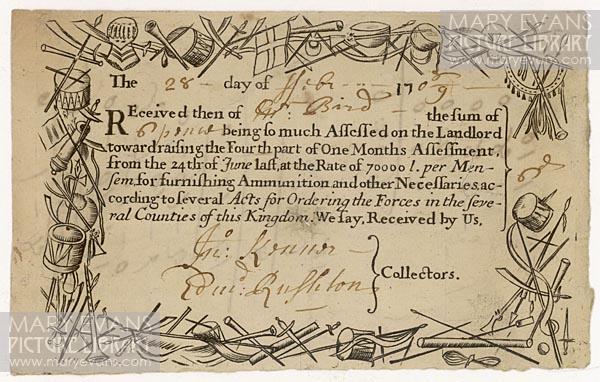 MARY EVANS
PICTURE LIBRARY
The 28 day of Feb: 170 8/9
Received then of Mr: Bird the sum of
6 pence being so much Assessed on the Landlord
toward raising the Fourth part of One Months Assessment,
from the 24th. of June last, at the Rate of 70000 l. per Men-
sem, for furnishing Ammunition and other Necessaries, ac-
cording to several Acts for Ordering the Forces in the seve-
ral Counties of this Kingdom. We say, Received by Us,
6d
Jno. Kenner
Edwd. Rushton
Collectors.
MARY EVANS
PICTURE LIBRARY
www.maryevans.com
MARY EVANS
PICTURE LIBRARY
www.maryevans.com